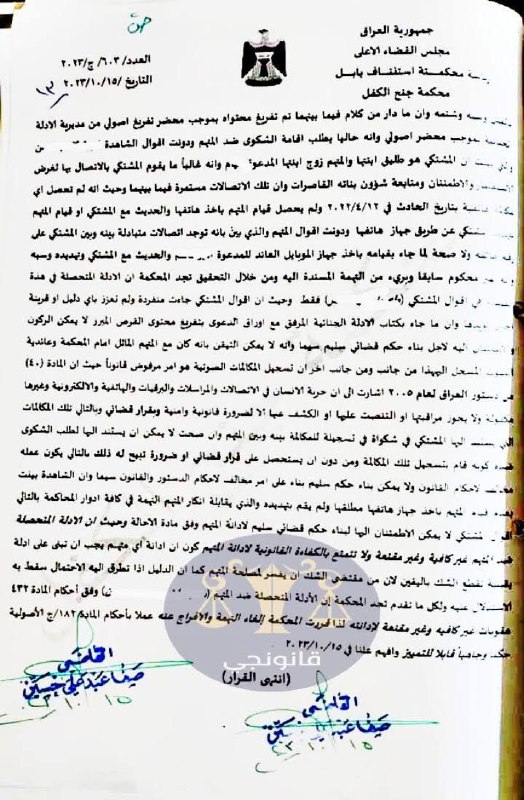 جمهورية العراق
مجلس القضاء الاعلى
محكمة استئناف بابل
محكمة جنح الكفل
العدد/٦٠٣/ج/٢٠٢٣
التاريخ/٢٠٢٣/١٠/١٥
وسبه وشتمه وان ما دار من كلام فيما بينهما تم تفريغ محتواه بموجب محضر تفريغ اصولي من مديرية الادلة
بموجب محضر اصولي وانه حاليا يطلب اقامة الشكوى ضد المتهم ودونت اقوال الشاهدة
ان المشتكي هو طليق ابنتها والمتهم زوج ابنتها المدعوة وانه غالباً ما يقوم المشتكي بالاتصال بها لغرض
والاطمئنان ومتابعة شؤون بناته القاصرات وان تلك الاتصالات مستمرة فيما بينهما وحيث انه لم تحصل اي
بتاريخ الحادث في ٢٠٢٢/٤/١٢ ولم يحصل قيام المتهم باخذ هاتفها والحديث مع المشتكي او قيام المتهم
عن طريق جهاز هاتفها ودونت اقوال المتهم والذي بين بانه توجد اتصالات متبادلة بينه وبين المشتكي على
ولا صحة لما جاء بقيامه باخذ جهاز الموبايل العائد للمدعوة والحديث مع المشتكي وتهديده وسبه
محكوم سابقا وبريء من التهمة المسندة اليه ومن خلال التحقيق تجد المحكمة ان الادلة المتحصلة في هذة
في اقوال المشتكي فقط وحيث ان اقوال المشتكي جاءت منفردة ولم تعزز باي دليل او قرينة
وان ما جاء بكتاب الادلة الجنائية المرفق مع اوراق الدعوى بتفريغ محتوى القرص المبرز لا يمكن الركون
اليه لاجل بناء حكم قضائي سليم سيما وانه لا يمكن التيقن بانه كان مع المتهم الماثل امام المحكمة وعائدية
المسجل اليهذا من جانب ومن جانب اخر ان تسجيل المكالمات الصوتية هو امر مرفوض قانوناً حيث ان المادة (٤٠)
من دستور العراق لعام ٢٠٠٥ اشارت الى ان حرية الانسان في الاتصالات والمراسلات البرقيات والهاتفية والالكترونية وغيرها
مكفولة ولا يجوز مراقبتها او التنصت عليها او الكشف عنها الا لضرورة قانونية وامنية وبقرار قضائي وبالتالي تلك المكالمات
اليها المشتكي في شكواه في تسجيلة للمكالمة بينه وبين المتهم وان صحت لا يمكن ان يستند اليها لطلب الشكوى
ضده كونه قام بتسجيل تلك المكالمة ومن دون ان يستحصل على قرار قضائي او ضرورة تبيح له ذلك بالتالي يكون عمله
لاحكام القانون ولا يمكن بناء حكم سليم بناء على امر مخالف لاحكام الدستور والقانون سيما وان الشاهدة بينت
المتهم باخذ جهاز هاتفها مطلقها ولم يقم بتهديده والذي يقابلة انكار المتهم التهمة في كافة ادوار المحاكمة بالتالي
المشتكي لا يمكن الاطمئنان اليها لبناء حكم قضائي سليم لادانة المتهم وفق مادة الاحالة وحيث ان الادلة المتحصلة
ضد المتهم غير كافية وغير مقنعة ولا تتمتع بالكفاءة القانونية لادانة المتهم كون ان ادانة أي متهم يجب ان تبنى على ادلة
تقطع الشك باليقين لان من مقتضى الشك ان يفسر لمصلحة المتهم كما ان الدليل اذا تطرق اليه الاحتمال سقط به
الاستدلال عليه ولكل ما تقدم تجد المحكمة إن الأدلة المتحصلة ضد المتهم وفق أحكام المادة ٤٣٢
عقوبات غير كافيه وغير مقنعة لإدانته لذا قررت المحكمة إلغاء التهمة والافراج عنه عملا بأحكام المادة ١٨٢/ج الأصولية
حكماً وجاهياً قابلا للتمييز وافهم علنا في ٢٠٢٣/١٠/١٥
قانونجي
(انتهى القرار)
القاضي
صفاء عبد علي حسين
القاضي